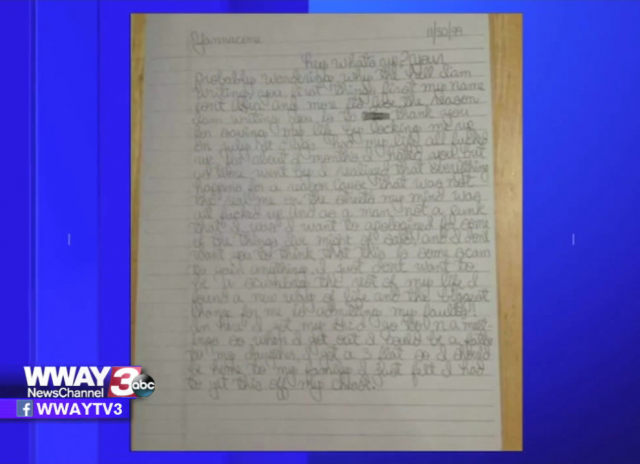 Yannacone 11/30/99
hey whats up? your
Probably wondering why the hell I am
writing you, first things first my name
any more its like the reason
I am writing you is to thank you
for saving my life by locking me up
on july had my life all fucked
up, for about months I hated you but
as time went by I realized that everything
happens for a reason cause that was not
the real me in the streets my mind was
all fucked up and as a man not a punk
that I was I want to apologized for some
of the things I've might of said and I dont
want you to think that this is some scam
to gain anything I just dont want to
be a scumbag the rest of my life I
found a new way of life and the biggest
change for me is admitting my faults
in here I get my go to NA meet-
ings so when I get out I could be a father
to my daughter I got a 3 flat so I should
be home to my family I just felt I had
to get this off my chest.
WWAY 3 abc
NewsChannel
f WWAYTV3